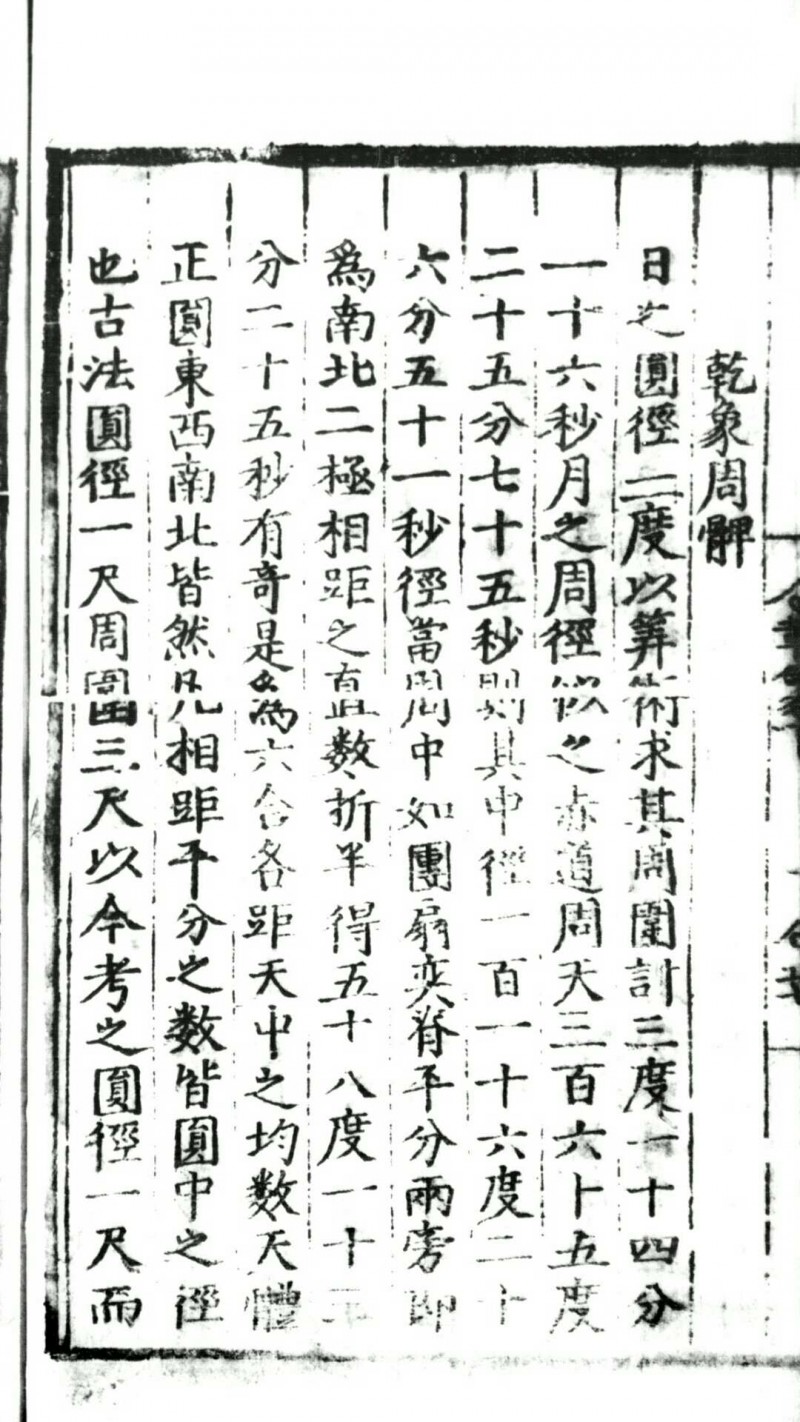 乾象周髀
日之圓徑一度以筭術求其周圍計三度一十四分
一十六秒月之周徑似之赤道周天三百六十五度
二十五分七十五秒則其中徑一百一十六度二十
六分五十一秒徑當周中如團扇夾脊平分兩旁即
為南北二極相距之直數折半得五十八度一十三
分二十五秒有奇是為六合各距天中之均數天體
正圓東西南北皆然凡相距平分之數皆圓中之徑
也古法圓徑一尺周圍三尺以今考之圓徑一尺而